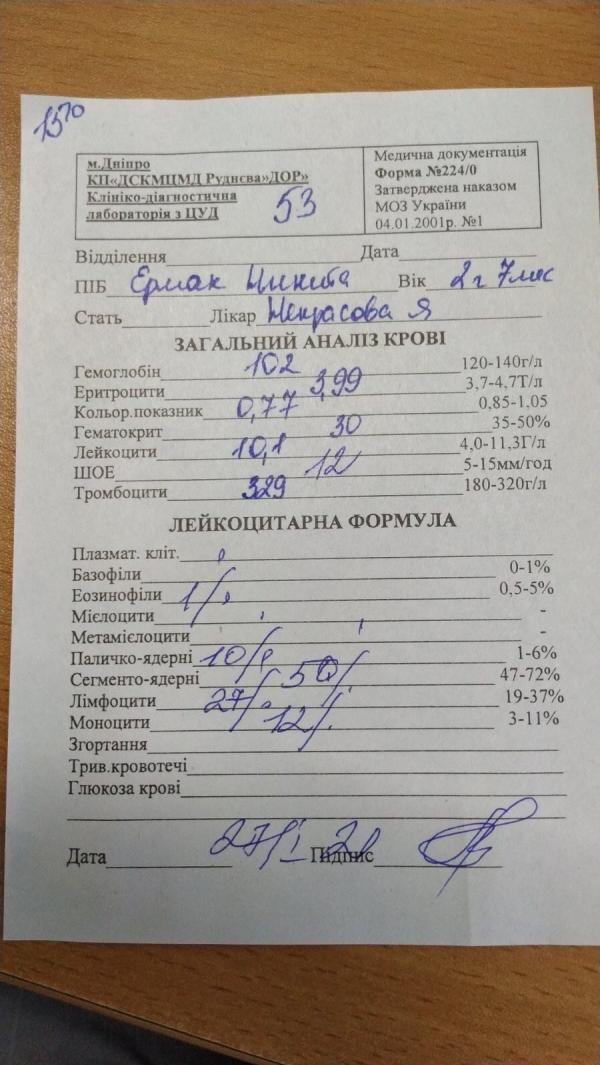 15⁷⁰
м.Дніпро
КП«ДСКМЦМД Руднєва»ДОР»
Клініко-діагностична
лабораторія з ЦУД 53
Медична документація
Форма №224/0
Затверджена наказом
МОЗ України
04.01.2001р. №1
Відділення Дата
ПІБ Ермак Никита Вік 2 г 7 мес
Стать Лікар Некрасова Я
ЗАГАЛЬНИЙ АНАЛІЗ КРОВІ
Гемоглобін 102 120-140г/л
Еритроцити 3,99 3,7-4,7Т/л
Кольор.показник 0,77 0,85-1,05
Гематокрит 30 35-50%
Лейкоцити 10,1 4,0-11,3Г/л
ШОЕ 12 5-15мм/год
Тромбоцити 329 180-320г/л
ЛЕЙКОЦИТАРНА ФОРМУЛА
Плазмат. кліт.
Базофіли 0-1%
Еозинофіли 1% 0,5-5%
Мієлоцити -
Метамієлоцити -
Паличко-ядерні 10% 1-6%
Сегменто-ядерні 50% 47-72%
Лімфоцити 27% 19-37%
Моноцити 12% 3-11%
Згортання
Трив.кровотечі
Глюкоза крові
Дата 27/I 20 Підпис